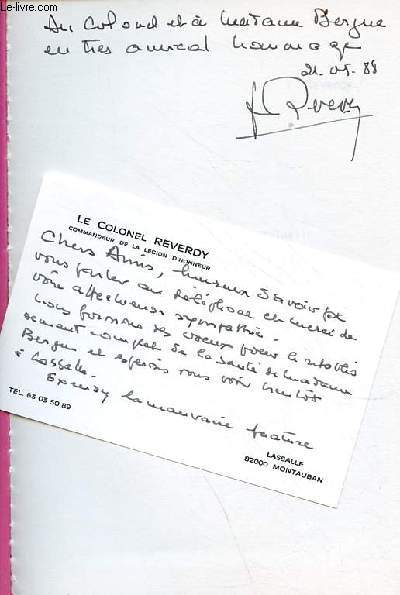 © Le-livre.com
Au Colonel et à Madame Bergue
en très amical hommage
21.05.88
Reverdy
LE COLONEL REVERDY
COMMANDEUR DE LA LEGION D'HONNEUR
Chers Amis, heureux d'avoir pu
vous parler au téléphone et merci de
votre affectueuse sympathie.
Nous formons des voeux pour le rétablis
sement complet de la santé de Madame
Bergue et espérons vous voir bientôt
à Lassalle.
Excusez la mauvaise
TEL. 63 03 50 80
LASSALLE
82000 MONTAUBAN